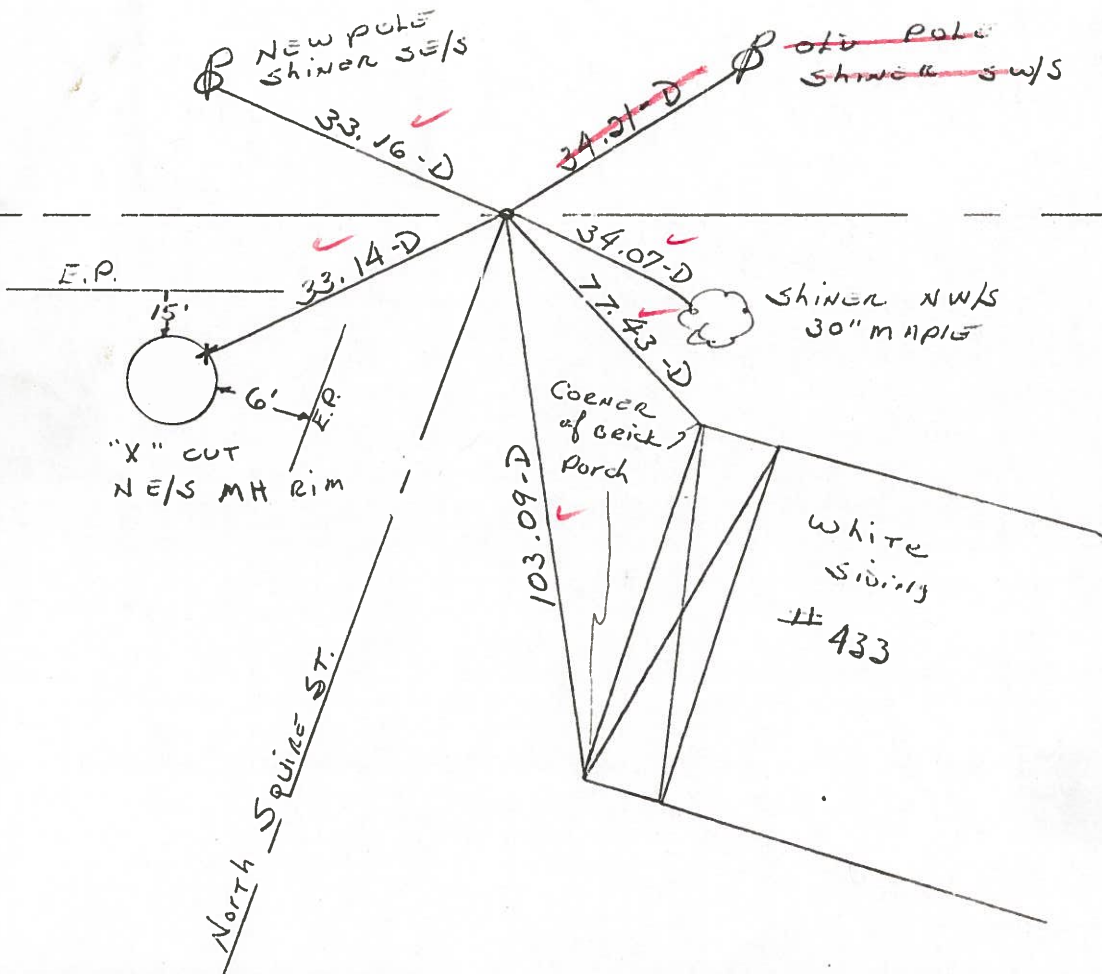 NEW POLE
SHINER SE/S
OLD POLE
SHINER SW/S
33.16-D
34.21-D
33.14-D
34.07-D
77.43-D
E.P.
15'
SHINER NW/S
30" MAPLE
6'
E.P.
"X" CUT
NE/S MH RIM
CORNER
of BRICK
Porch
103.09-D
WHITE
SIDING
# 433
NORTH SQUIRE ST.